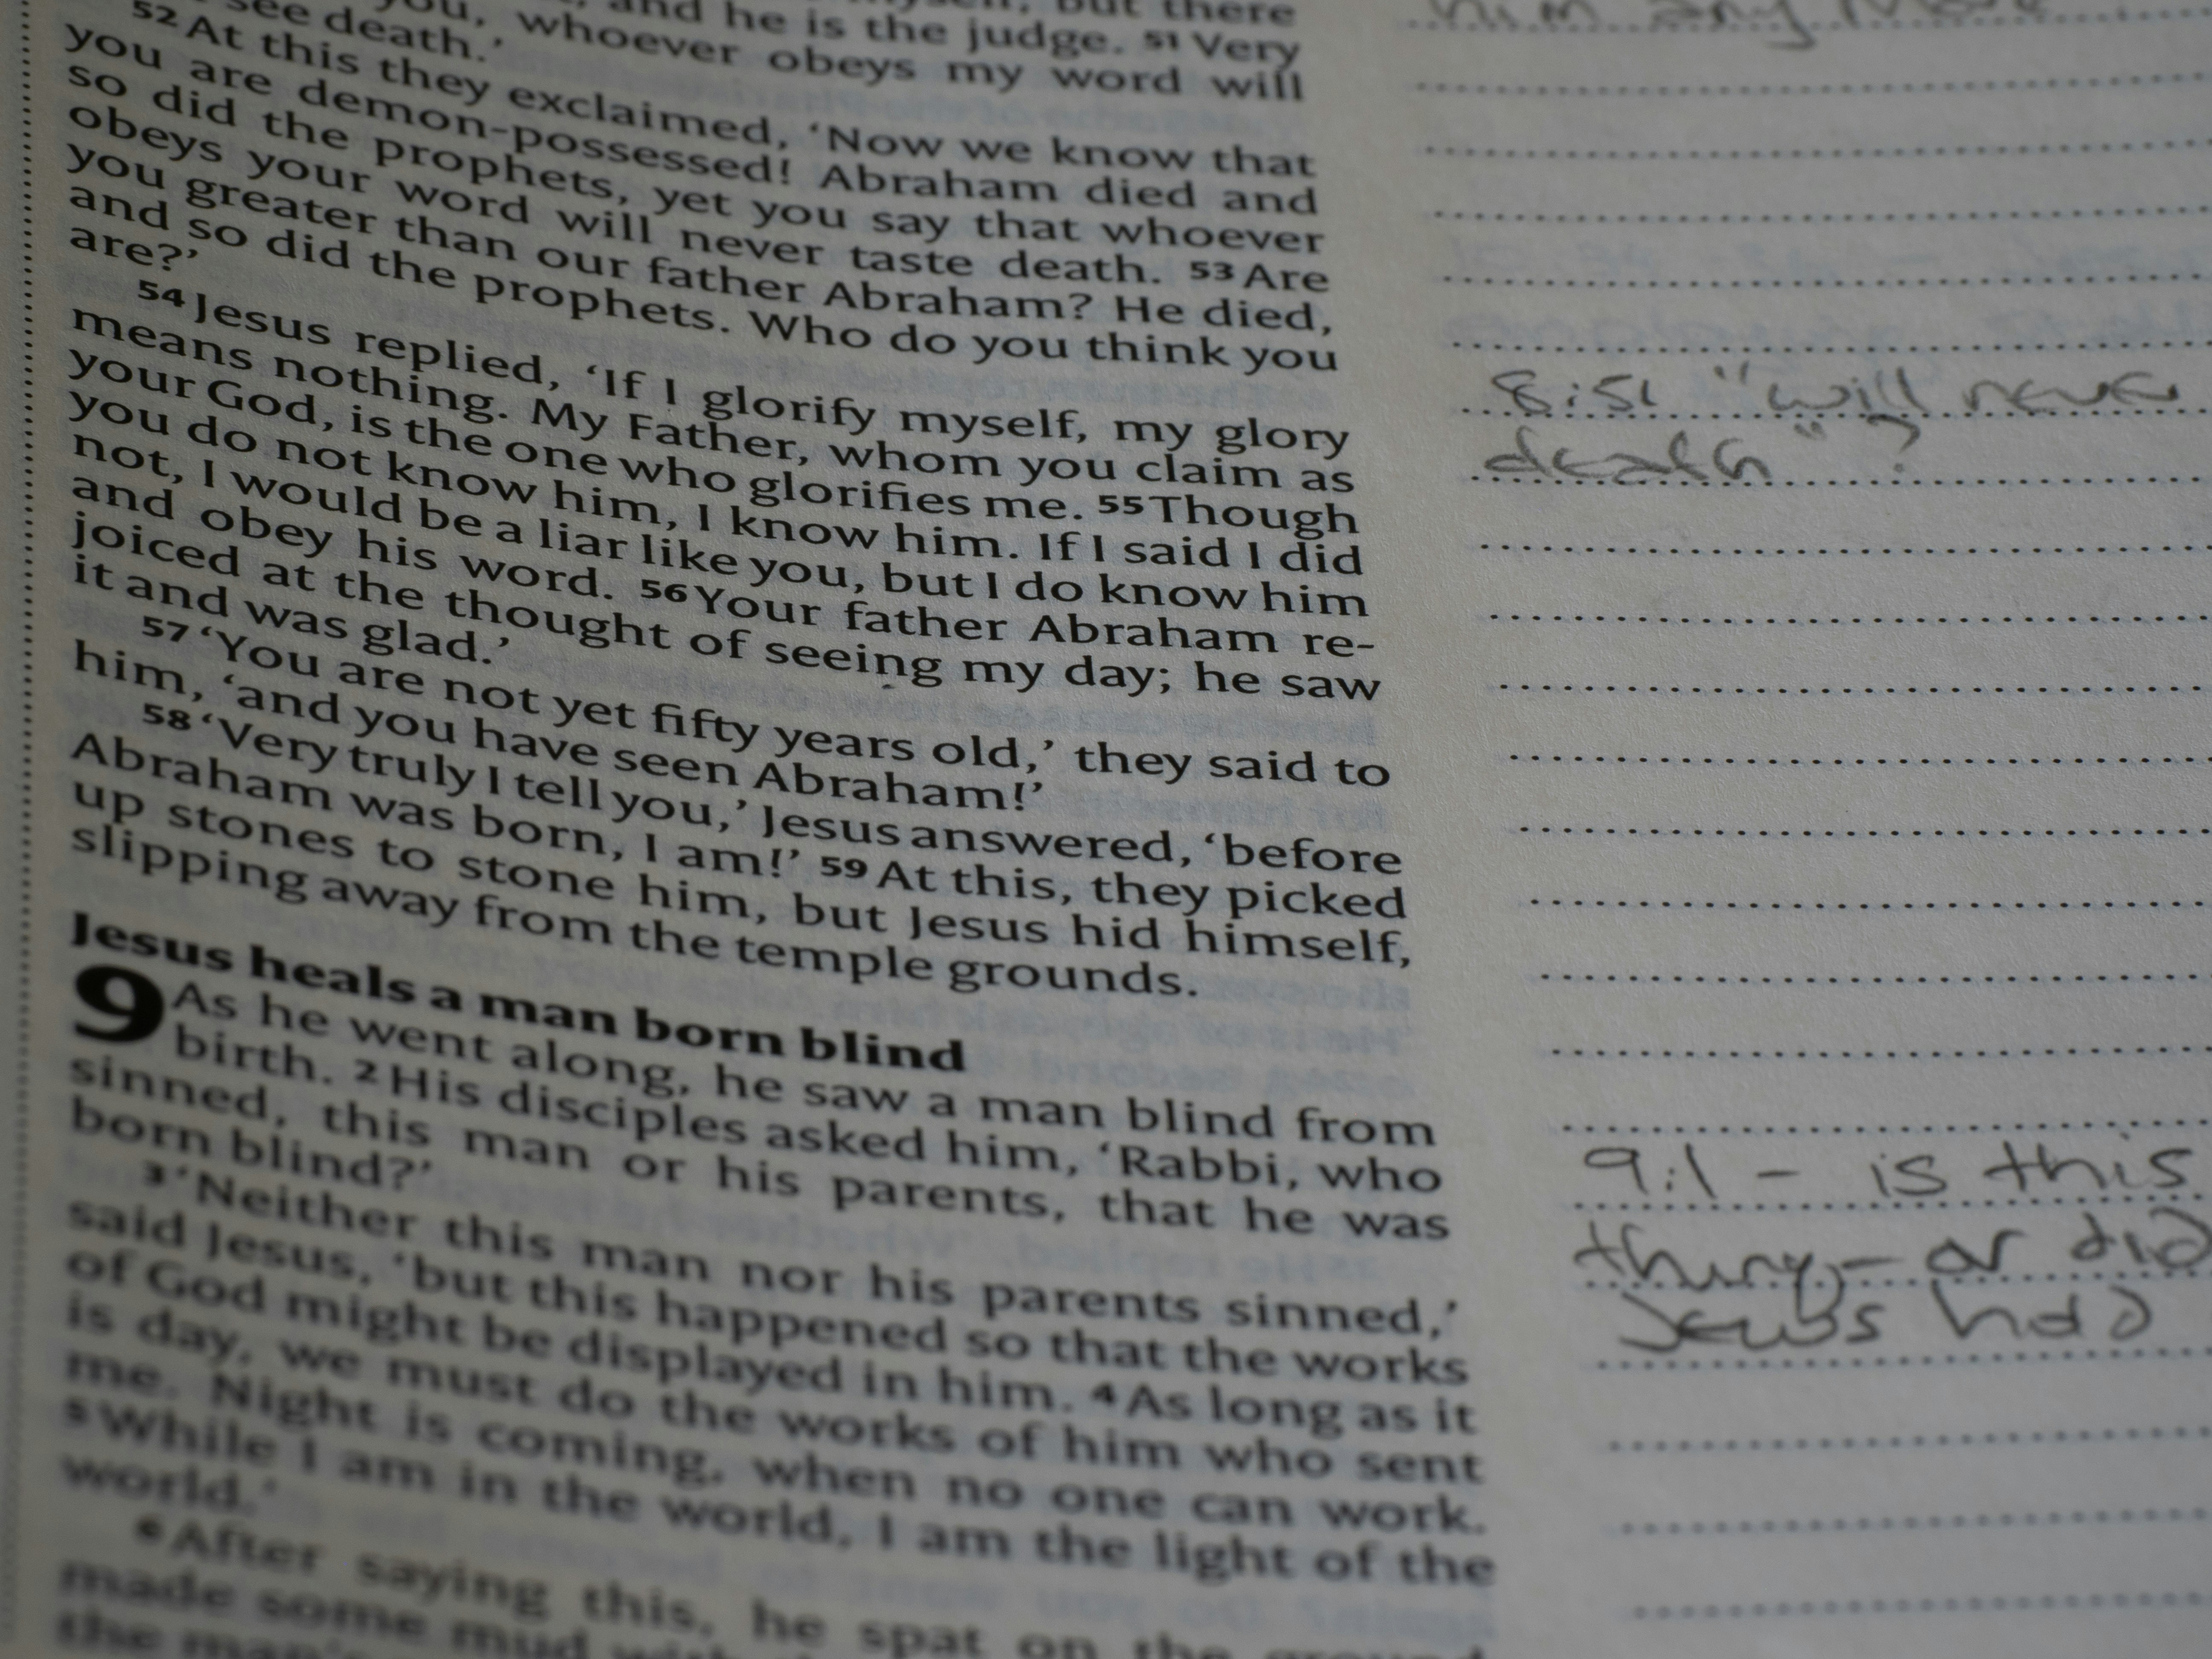 and he is the judge. 51 Very
you, whoever obeys my word will
see death.’
52 At this they exclaimed, ‘Now we know that
you are demon-possessed! Abraham died and
so did the prophets, yet you say that whoever
obeys your word will never taste death. 53 Are
you greater than our father Abraham? He died,
and so did the prophets. Who do you think you
are?’
54 Jesus replied, ‘If I glorify myself, my glory
means nothing. My Father, whom you claim as
your God, is the one who glorifies me. 55 Though
you do not know him, I know him. If I said I did
not, I would be a liar like you, but I do know him
and obey his word. 56 Your father Abraham re-
joiced at the thought of seeing my day; he saw
it and was glad.’
57 ‘You are not yet fifty years old,’ they said to
him, ‘and you have seen Abraham!’
58 ‘Very truly I tell you,’ Jesus answered, ‘before
Abraham was born, I am!’ 59 At this, they picked
up stones to stone him, but Jesus hid himself,
slipping away from the temple grounds.
Jesus heals a man born blind
9 As he went along, he saw a man blind from
birth. 2 His disciples asked him, ‘Rabbi, who
sinned, this man or his parents, that he was
born blind?’
3 ‘Neither this man nor his parents sinned,’
said Jesus, ‘but this happened so that the works
of God might be displayed in him. 4 As long as it
is day, we must do the works of him who sent
me. Night is coming, when no one can work.
5 While I am in the world, I am the light of the
world.’
6 After saying this, he spat on the ground
made some mud with
the man’s
him any more
8:51 "will never
death"?
9:1 - is this
thing - or did
Jews had